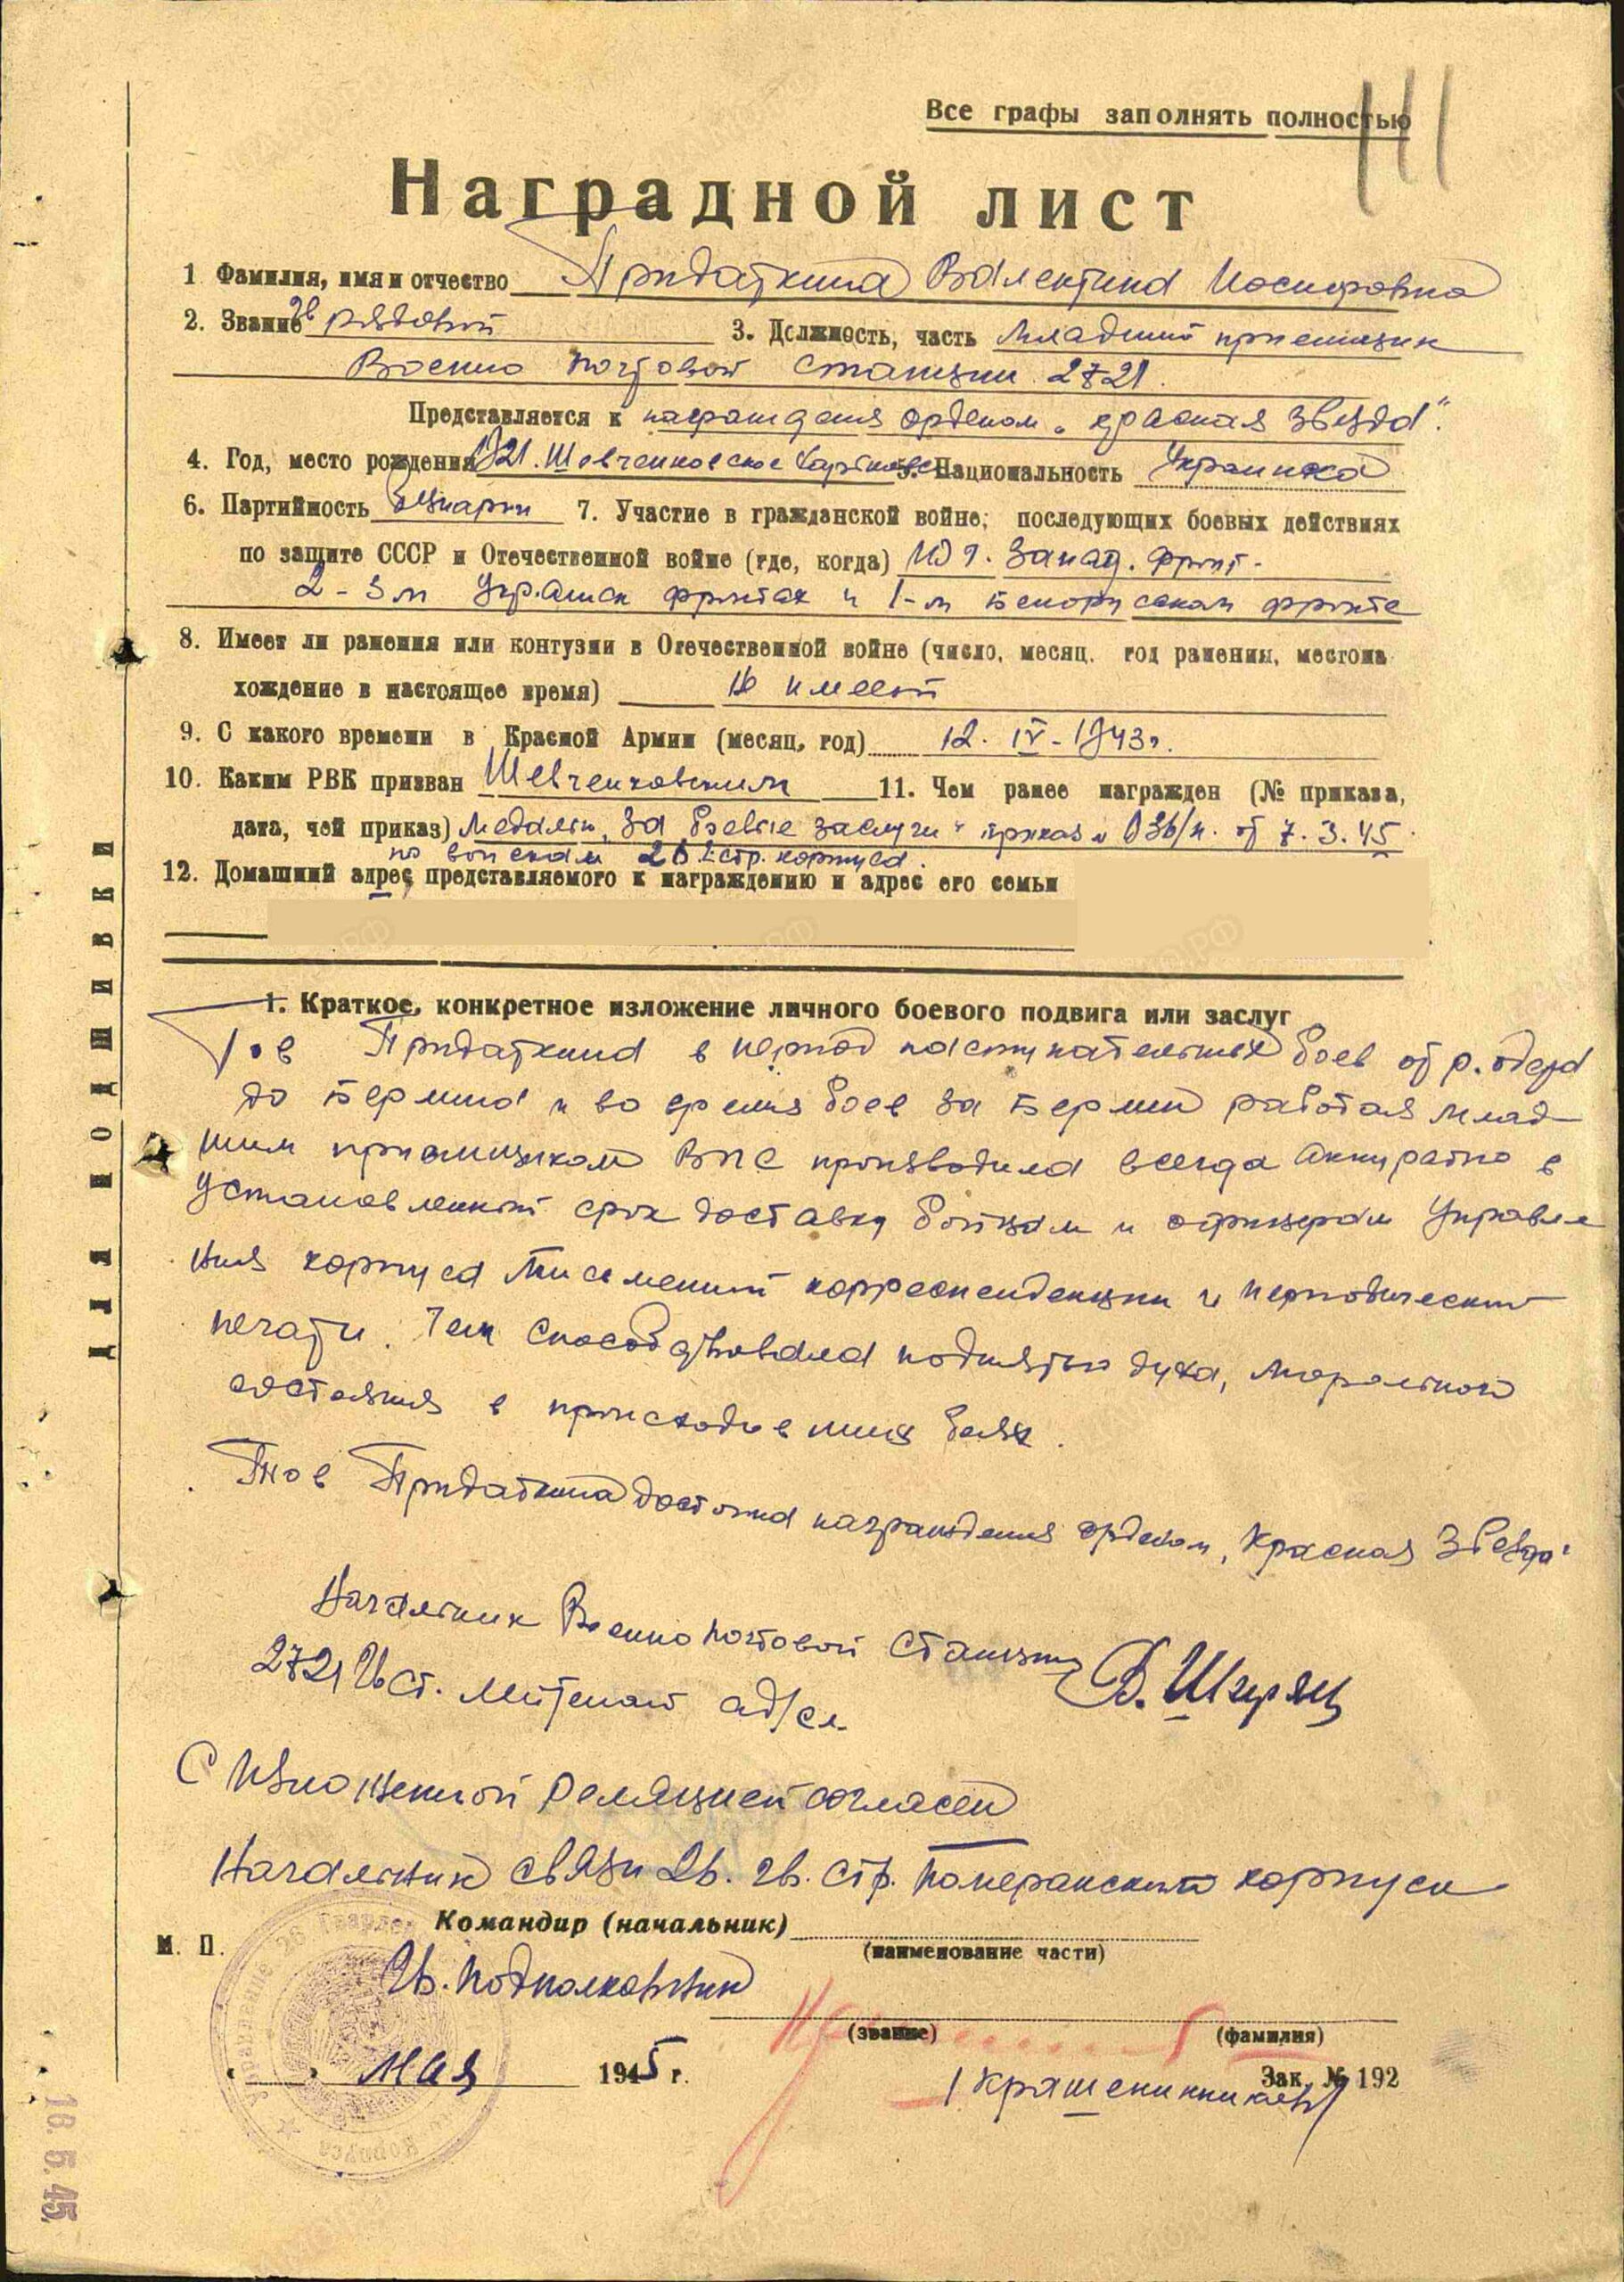 Все графы заполнять полностью
Наградной лист
1 Фамилия, имя и отчество Придаткина Валентина Иосифовна
2. Звание гв рядовой 3. Должность, часть младший приемщик
Военно почтовой станции 2721.
Представляется к награждения орденом „красная звезда".
4. Год, место рождения 1921. Шевченковское 5. Национальность Украинка
6. Партийность б/парт 7. Участие в гражданской войне, последующих боевых действиях
по защите СССР и Отечественной войне (где, когда) Юг. Запад. фронт-
2-3 м Украинск фронтах и 1-м Белорусском фронте
8. Имеет ли ранения или контузии в Отечественной войне (число, месяц, год ранения, местона
хождение в настоящее время) Не имеет
9. С какого времени в Красной Армии (месяц, год) 12. IV-1943г.
10. Каким РВК призван Шевченковским 11. Чем ранее награжден (№ приказа,
дата, чей приказ) Медаль „За боевые заслуги" приказ № 036/н. от 7.3.45
по войскам 26 гв. стр. корпуса.
12. Домашний адрес представляемого к награждению и адрес его семьи
1. Краткое, конкретное изложение личного боевого подвига или заслуг
Тов Придаткина в период наступательных боев от р. Одера
до Берлина и во время боев за Берлин работая млад
шим приемщиком ВПС производила всегда аккуратно в
установленный срок доставку бойцам и офицерам Управле
ния корпуса письменной корреспонденции и периодической
печати. Тем способствовала поднятью духа, морального
состояния в происходивших боях.
Тов Придаткина достойна награждения орденом „Красная Звезда"
Начальник Военно почтовой станции
2721 Гв Ст. Лейтенант ад/сл.
С изложенной реляцией согласен
Начальник связи 26. гв. стр. Померанского корпуса
Командир (начальник)
(наименование части)
М. П.
Гв. Подполковник
(звание) (фамилия)
мая 1945 г.
Зак. № 192
/Крашенинников/
ДЛЯ ПОДШИВКИ
16.5.45.